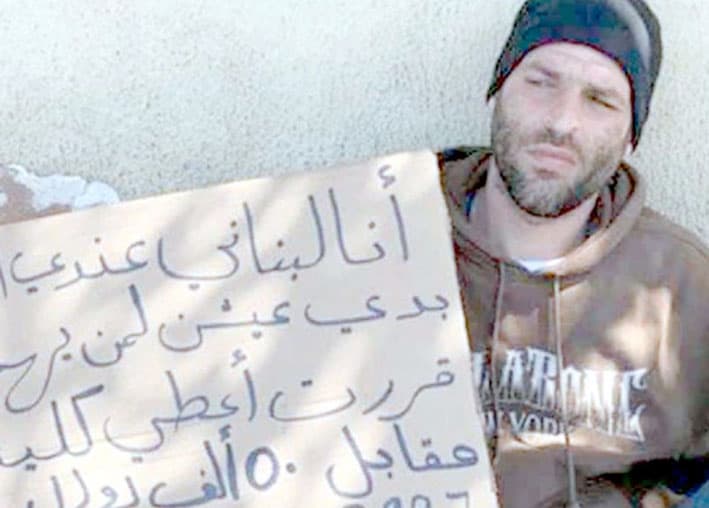 أنا لبناني عندي
بدي عيش لمن
قررت أعطي
مقابل ٥٠ ألف دولار